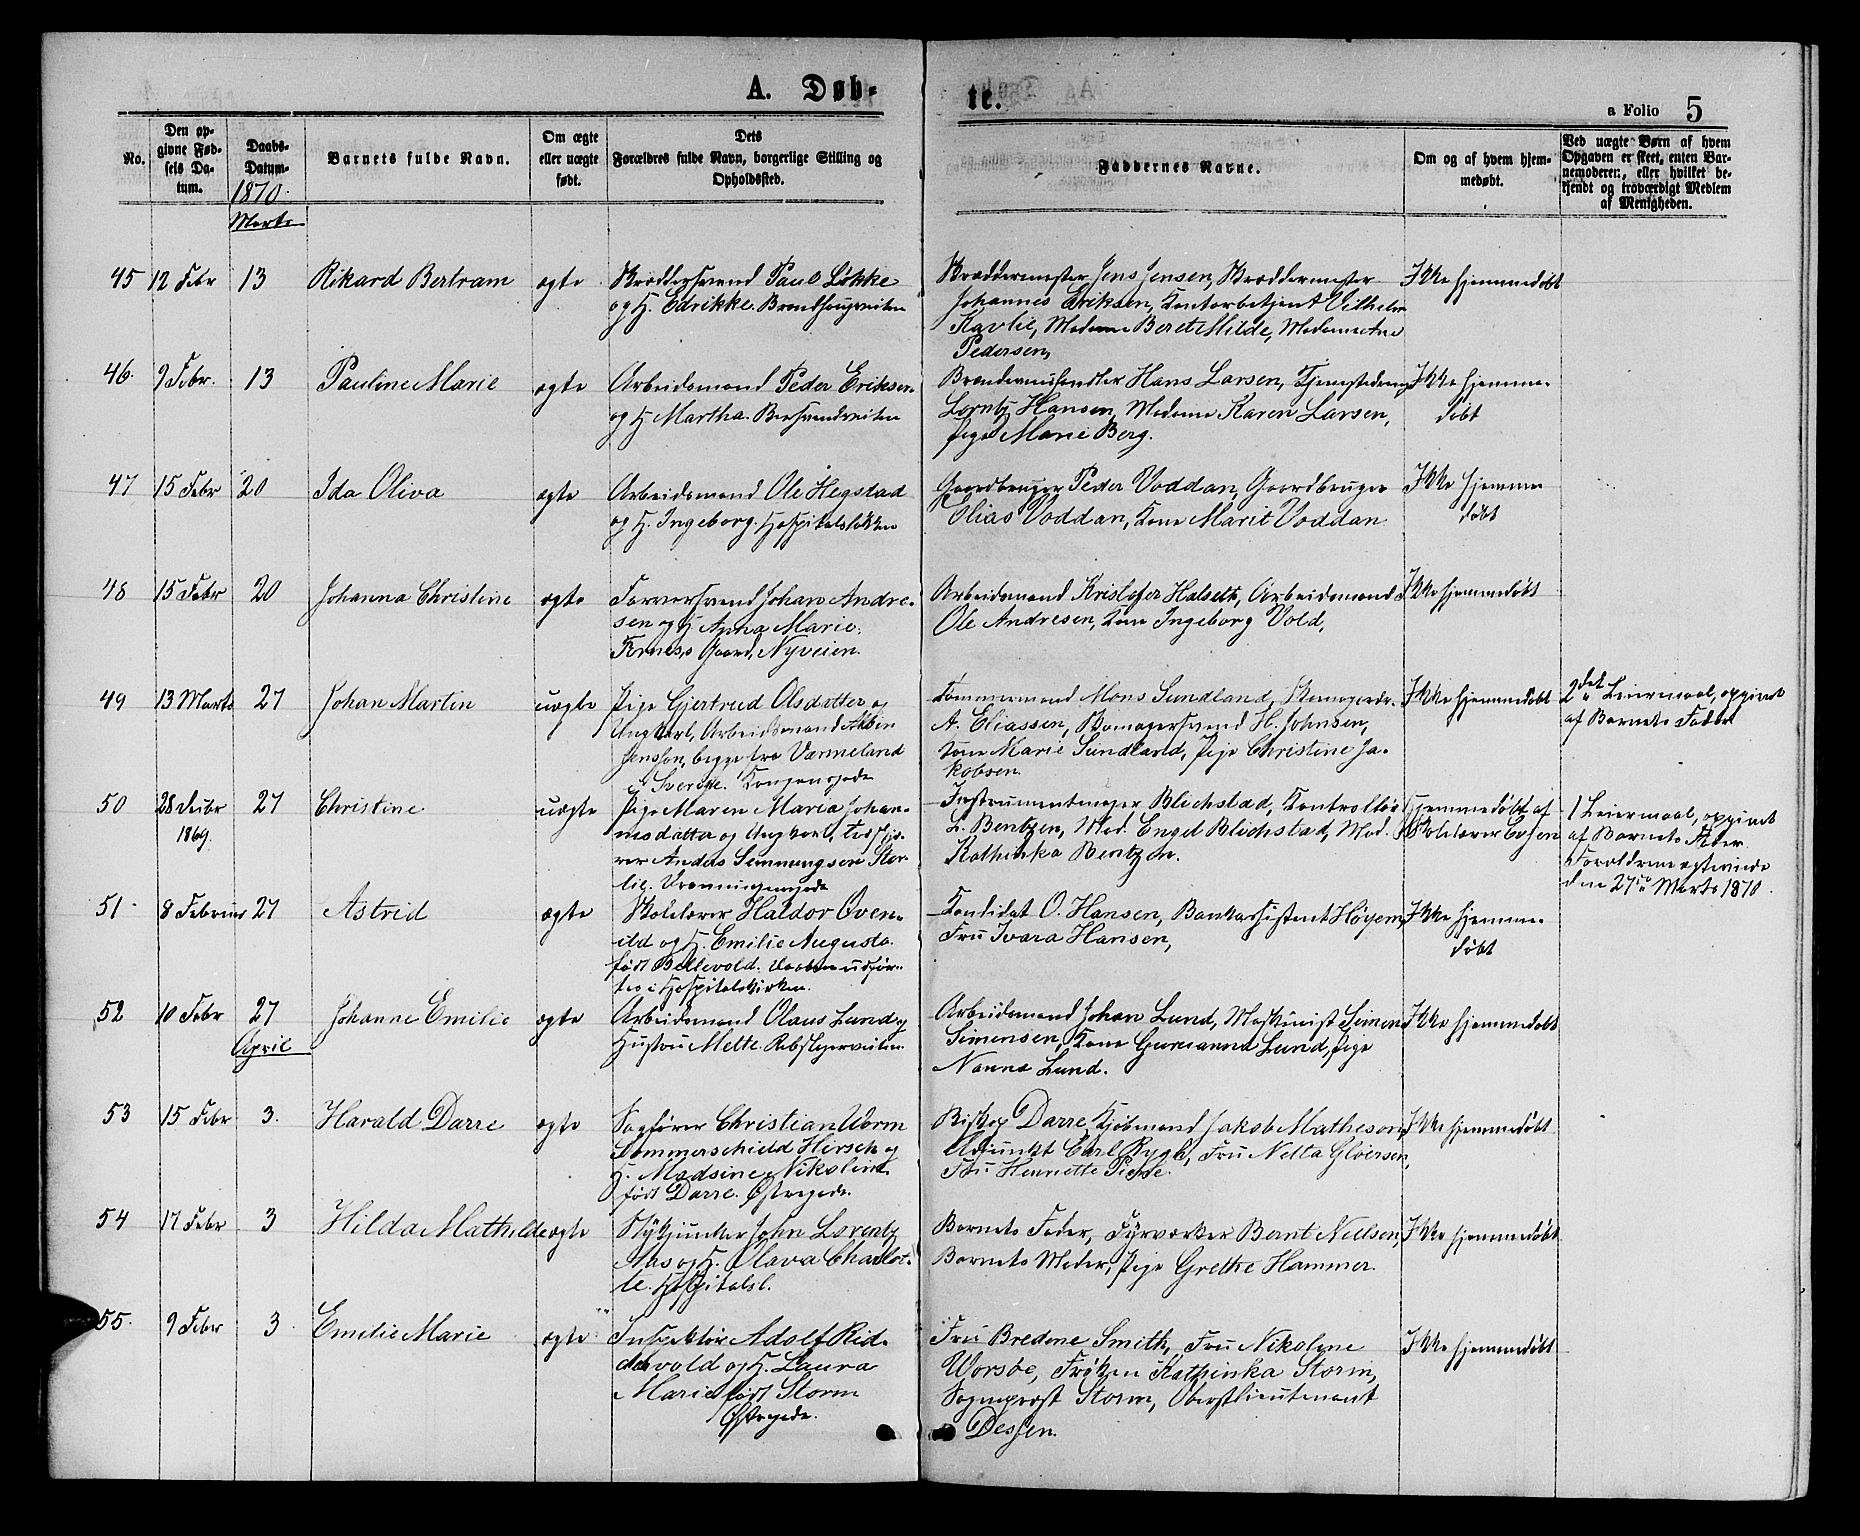 A. Døb-
te.
a Folio 5
No.
Den op-
givne Fød-
sels Da-
tum.
Daabs-
Datum.
1870.
Marts
Barnets fulde Navn.
Om ægte
eller uægte
født.
Dets
Forældres fulde Navn, borgerlige Stilling og
Opholdssted.
Faddernes Navne.
Om og af hvem hjem-
medøbt.
Ved uægte Børn af hvem
Opgaven er skeet, enten Bar-
nemoderen, eller hvilket be-
kjendt og troværdigt Medlem
af Menigheden.
45 12 Febr 13 Rikard Bertram ægte
Skræddersvend Paul Løkke
og H. Edrikke.
Skræddermester Jens Jensen, Skræddermester
Johannes Eriksen, Kontorbetjent Vilhelm
Kavlie, Madame Beret Milde, Madame Ane
Pedersen,
Ikke hjemmedøbt
46. 9 Febr. 13 Pauline Marie ægte
Arbeidsmand Peder Eriksen
og H. Martha.
Hans Larsen,
Lorntz Hansen, Madame Karen Larsen,
Pige Marie Berg.
Ikke hjemme-
døbt
47 15 Febr 20 Ida Oliva ægte
Arbeidsmand Ole Hegstad
og H. Ingeborg. Hospitalsløkken
Gaardbruger Peder Voddan, Gaardbruger
Elias Voddan, Kone Marit Voddan
Ikke hjemme
døbt
48 15 Febr 20 Johanna Christine ægte
Farversvend Johan Andre-
sen og H. Anna Marie.
Gaard, Nyveien.
Arbeidsmand Kristofer Halseth, Arbeidsmand
Ole Andresen, Kone Ingeborg Vold,
Ikke hjemmedøbt
49 13 Marts 27 Johan Martin uægte
Pige Gjertrud Olsdatter og
Ungkarl, Arbeidsmand
Jensson, begge fra Værmeland
i Sverige. Kongensgade
Tømmermand Mons Sundland, Skomagersv.
A. Eliassen, Skomagersvend H. Johnsen,
Kone Marie Sundland, Pige Christine Ja-
kobsen.
Ikke hjemmedøbt
2det Leiermaal, opgivet
af Barnets Fader
50 28 1869. 27 Christine uægte
Pige Maren Maria Johan-
nesdatter og Ungkarl,
Anders Semmingsen Stor-
lie. Dronningensgade
Instrumentmager Blichstad, Kontrollør
L. Bentzen, Mad. Engel Blichstad, Mad.
Kathinka Bentzen.
Hjemmedøbt af
Skolelærer Evjen
1 Leiermaal, opgivet
af Barnets Fader.
Forældrene ægteviede
den 27de Marts 1870.
51 8 Februar 27 Astrid ægte
Skolelærer Haldor Oven-
ild og H. Emilie Augusta
født Bellevold. Daaben udfør-
tes i Hospitalskirken.
Kandidat O. Hansen, Bankassistent Høyem,
Fru Ivara Hansen,
Ikke hjemme-
døbt
52 10 Febr 27 Johanne Emilie ægte
April
Arbeidsmand Olaus Lund og
Hustru Mette. Rebslagerveiten
Arbeidsmand Johan Lund, Maskinist Simen
Simensen, Kone Gurianna Lund, Pige
Nanna Lund.
Ikke hjemmedøbt
53 15 Febr 3. Harald Darre ægte
Sagfører Christian Worm
Sommerschield Hirsch og
H. Madsine Nikoline
født Darre. Østregade.
Biskop Darre, Kjøbmand Jakob Matheson,
Adjunkt Carl Rygh, Fru Netta Gløersen,
Fru Henriette
Ikke hjemmedøbt
54 17 Febr 3 Hilda Mathilde ægte
Stykjunker John Lorentz
Aas og H. Olava Charlot-
te. Hospitalsl.
Barnets Fader, Fyrværker Bernt Nielsen,
Barnets Moder, Pige Grethe Hammer.
Ikke hjemmedøbt
55. 9 Febr 3 Emilie Marie ægte
Inspektør Adolf Rid-
dervold og H. Laura
Marie født Storm
Østregade.
Fru Bredene Smith, Fru Nikoline
Worsøe, Frøken Kathinka Storm,
Sogneprest Storm, Oberstlieutenant
Dessen.
Ikke hjemmedøbt